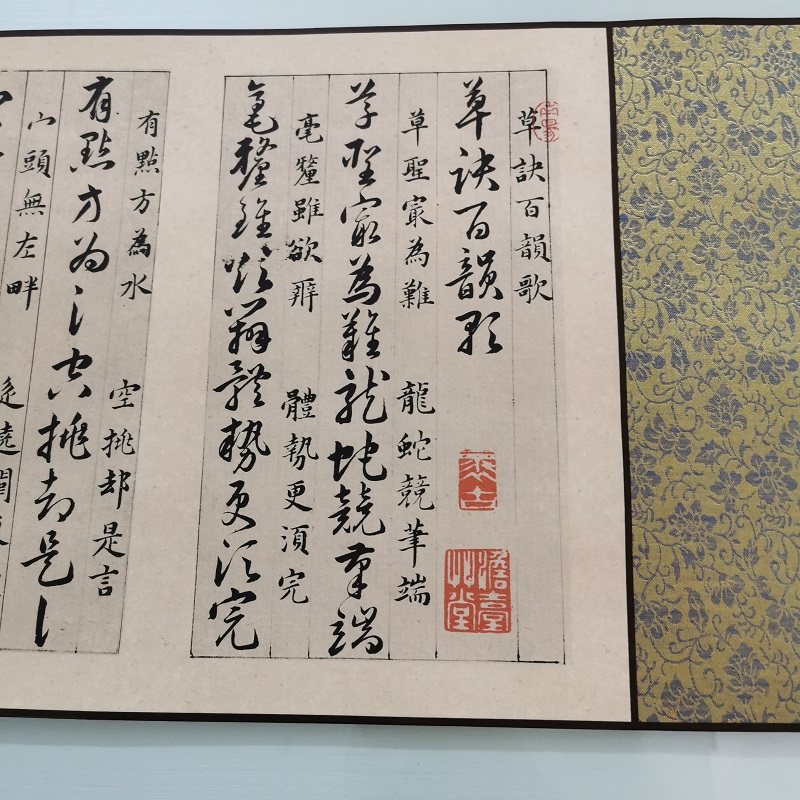 草訣百韻歌
草訣百韻歌
草聖宬為難 龍蛇競筆端
草聖宬為難龍蛇競筆端
毫釐雖欲辨 體勢更須完
毫釐雖欲辨體勢更須完
有點方為水 空挑却是言
有點方為水空挑却是言
山頭無左畔